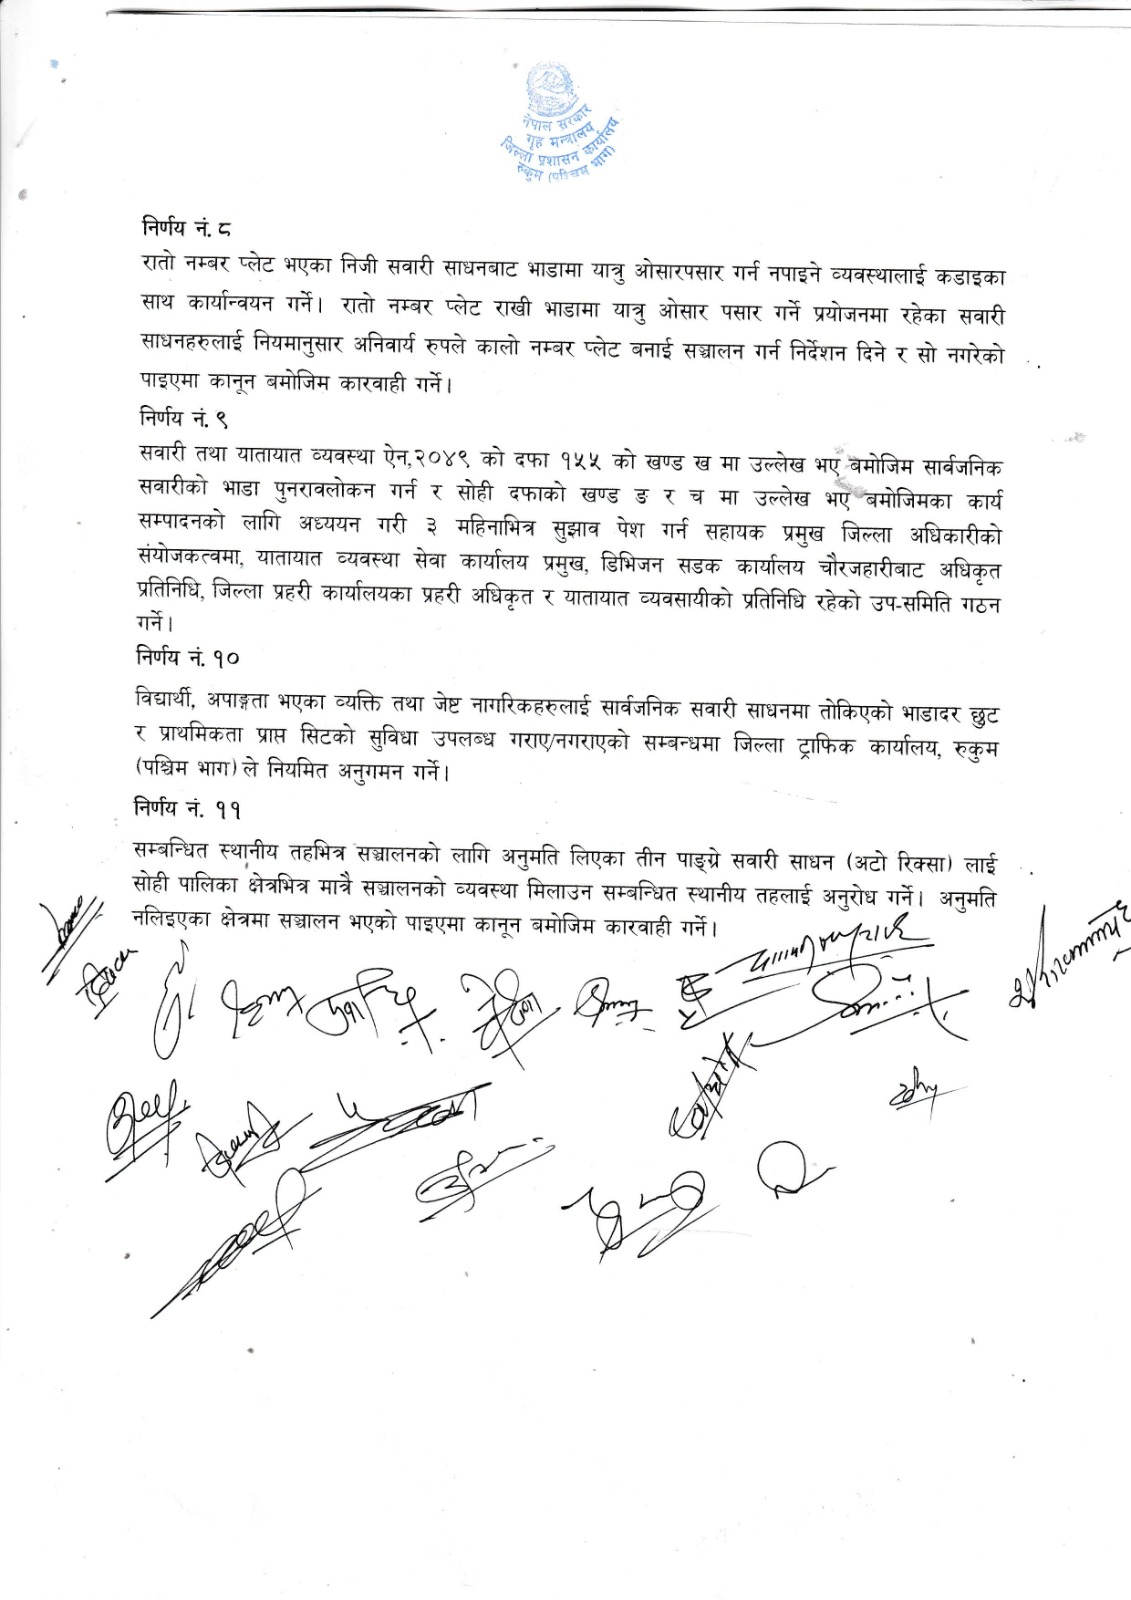 नेपाल सरकार
गृह मन्त्रालय
जिल्ला प्रशासन कार्यालय
रुकुम (पश्चिम भाग)
निर्णय नं. ८
रातो नम्बर प्लेट भएका निजी सवारी साधनबाट भाडामा यात्रु ओसारपसार गर्न नपाइने व्यवस्थालाई कडाइका
साथ कार्यान्वयन गर्ने। रातो नम्बर प्लेट राखी भाडामा यात्रु ओसार पसार गर्ने प्रयोजनमा रहेका सवारी
साधनहरुलाई नियमानुसार अनिवार्य रुपले कालो नम्बर प्लेट बनाई सञ्चालन गर्न निर्देशन दिने र सो नगरेको
पाइएमा कानून बमोजिम कारवाही गर्ने।
निर्णय नं. ९
सवारी तथा यातायात व्यवस्था ऐन,२०४९ को दफा १५५ को खण्ड ख मा उल्लेख भए बमोजिम सार्वजनिक
सवारीको भाडा पुनरावलोकन गर्न र सोही दफाको खण्ड ङ र च मा उल्लेख भए बमोजिमका कार्य
सम्पादनको लागि अध्ययन गरी ३ महिनाभित्र सुझाव पेश गर्न सहायक प्रमुख जिल्ला अधिकारीको
संयोजकत्वमा, यातायात व्यवस्था सेवा कार्यालय प्रमुख, डिभिजन सडक कार्यालय चौरजहारीबाट अधिकृत
प्रतिनिधि, जिल्ला प्रहरी कार्यालयका प्रहरी अधिकृत र यातायात व्यवसायीको प्रतिनिधि रहेको उप-समिति गठन
गर्ने।
निर्णय नं. १०
विद्यार्थी, अपाङ्गता भएका व्यक्ति तथा जेष्ट नागरिकहरुलाई सार्वजनिक सवारी साधनमा तोकिएको भाडादर छुट
र प्राथमिकता प्राप्त सिटको सुविधा उपलब्ध गराए/नगराएको सम्बन्धमा जिल्ला ट्राफिक कार्यालय, रुकुम
(पश्चिम भाग) ले नियमित अनुगमन गर्ने।
निर्णय नं. ११
सम्बन्धित स्थानीय तहभित्र सञ्चालनको लागि अनुमति लिएका तीन पाङ्ग्रे सवारी साधन (अटो रिक्सा) लाई
सोही पालिका क्षेत्रभित्र मात्रै सञ्चालनको व्यवस्था मिलाउन सम्बन्धित स्थानीय तहलाई अनुरोध गर्ने। अनुमति
नलिइएका क्षेत्रमा सञ्चालन भएको पाइएमा कानून बमोजिम कारवाही गर्ने।